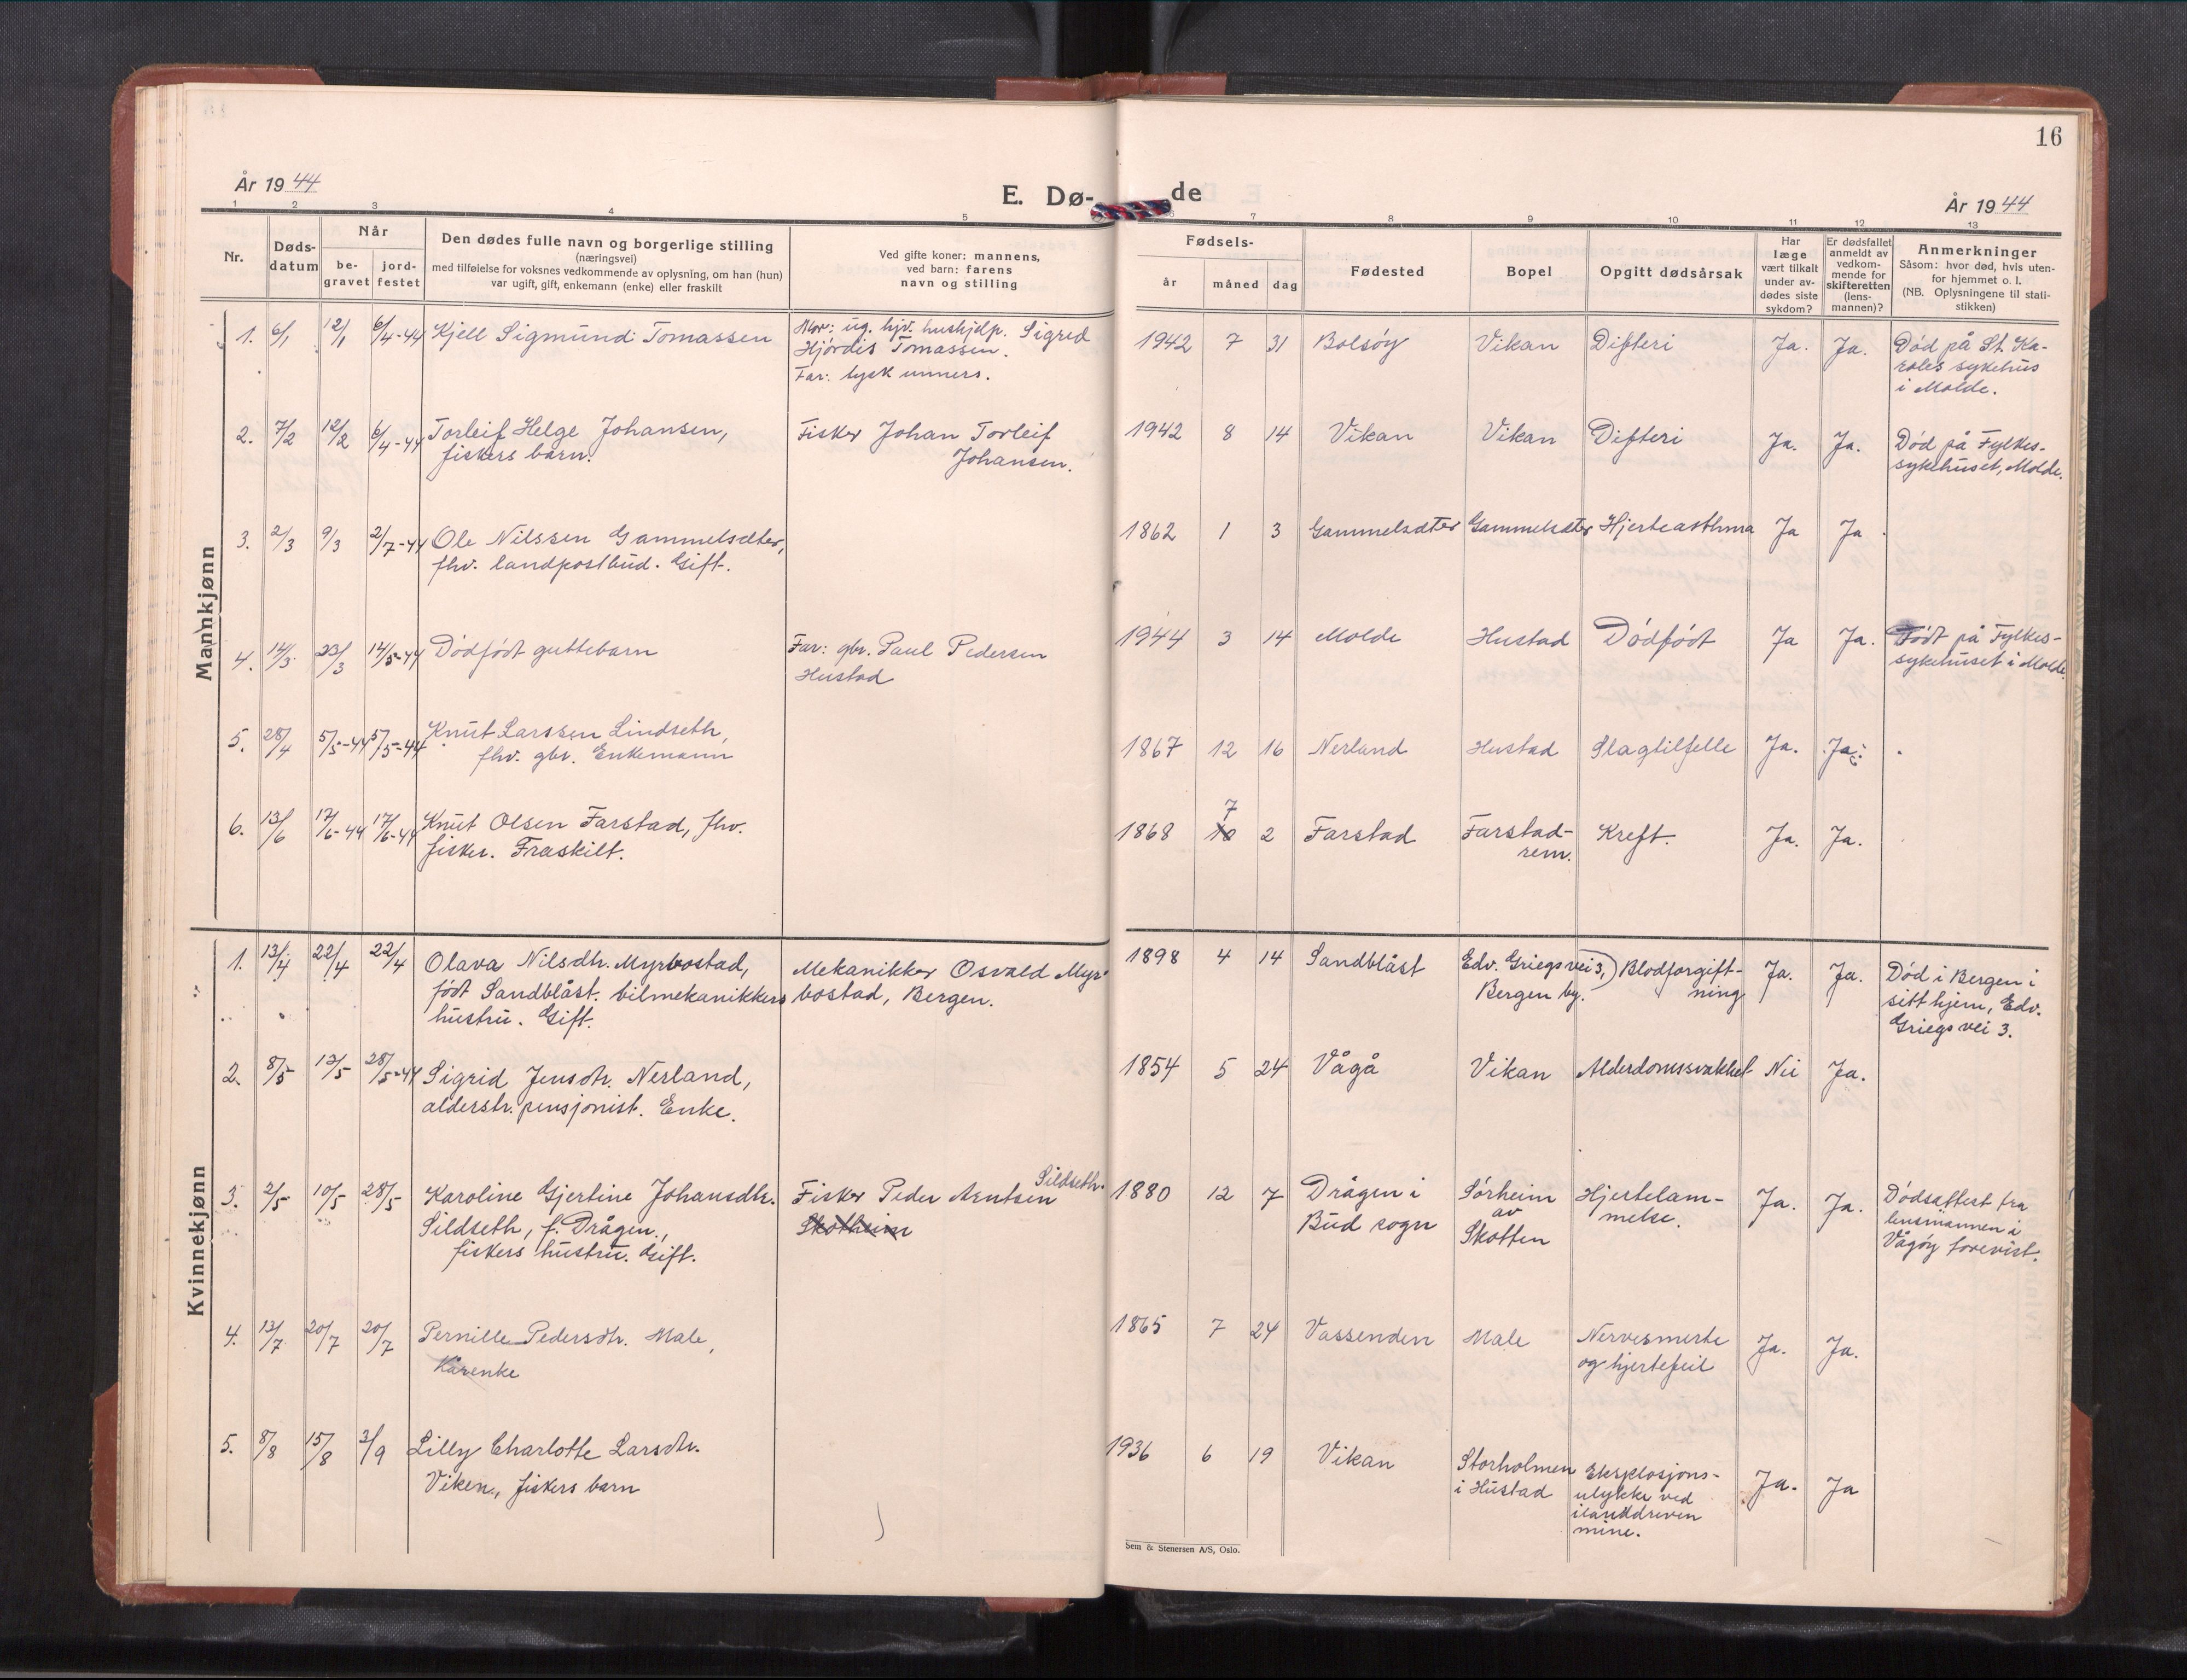 16
År 1944
E. Dø-
de
År 1944
1 2 3 4 5 6 7 8 9 10 11 12 13
Nr.
Døds-
datum
Når
be-
gravet
jord-
festet
Den dødes fulle navn og borgerlige stilling
(næringsvei)
med tilføielse for voksnes vedkommende av oplysning, om han (hun)
var ugift, gift, enkemann (enke) eller fraskilt
Ved gifte koner: mannens,
ved barn: farens
navn og stilling
Fødsels-
år måned dag
Fødested
Bopel
Opgitt dødsårsak
Har
læge
vært tilkalt
under av-
dødes siste
sykdom?
Er dødsfallet
anmeldt av
vedkom-
mende for
skifteretten
(lens-
mannen)?
Anmerkninger
Såsom: hvor død, hvis uten-
for hjemmet o. l.
(NB. Oplysningene til stati-
stikken)
Mannkjønn
1. 6/1 12/1 6/4-44 Kjell Sigmund Tomassen
Mor: ug. hjv. hushjelp. Sigrid
Hjördis Tomassen.
Far: tysk unners.
1942 7 31 Bolsöy Vikan Difteri Ja. Ja.
Död på St. Ka-
roles sykehus
i Molde.
2. 7/2 12/2 6/4-44 Torleif Helge Johansen,
fiskers barn.
Fisker Johan Torleif
Johansen.
1942 8 14 Vikan Vikan Difteri Ja. Ja.
Död på Fylkes-
sykehuset, Molde.
3. 2/3 9/3 2/7-44 Ole Nilssen Gammelsæter,
fhv. landpostbud. Gift.
1862 1 3 Gammelsæter Gammelsæter Hjerteasthma Ja Ja
4. 14/3 23/3 14/5-44 Dödfödt guttebarn
Far: gbr. Paul Pedersen
Hustad
1944 3 14 Molde Hustad Dödfödt Ja Ja.
Födt på Fylkes-
sykehuset i Molde.
5. 28/4 5/5-44 5/5-44 Knut Larssen Lindseth,
fhv. gbr. Enkemann
1867 12 16 Nerland Hustad Slagtilfelle Ja. Ja.
6. 13/6 17/6-44 17/6-44 Knut Olsen Farstad, fhv.
fisker. Fraskilt.
7
1868 10 2 Farstad Farstad-
rem.
Kreft. Ja. Ja.
Kvinnekjønn
1. 13/4 22/4 22/4 Olava Nilsdtr. Myrbostad,
födt Sandblåst. bilmekanikkers
hustru. Gift.
Mekanikker Osvald Myr-
bostad, Bergen.
1898 4 14 Sandblåst Edv. Griegs vei 3,
Bergen by.
Blodforgift-
ning
Ja. Ja.
Död i Bergen i
sitt hjem, Edv.
Griegs vei 3.
2. 8/5 12/5 28/5-44 Sigrid Jensdtr. Nerland,
alderstr. pensjonist. Enke.
1854 5 24 Vågå Vikan Alderdomssvakhet Nei Ja.
3. 2/5 10/5 28/5 Karoline Gjertine Johansdtr.
Sildseth, f. Drågen.,
fiskers hustru. Gift.
Sildseth.
Fisker Peder Arntsen
Skotheim
1880 12 7 Drågen i
Bud sogn
Sörheim
av
Skotten
Hjertelam-
melse.
Ja. Ja.
Dödsattest fra
lensmannen i
Vågöy forevist.
4. 13/7 20/7 20/7 Pernille Pedersdtr. Male,
Kårenke
1865 7 24 Vassenden Male Nervesmerte
og hjertefeil
Ja. Ja.
5. 8/8 15/8 3/9 Lilly Charlotte Larsdtr.
Viken., fiskers barn
1936 6 19 Vikan Storholmen
i Hustad
Eksplosjons-
ulykke ved
ilanddreven
mine.
Ja. Ja
Sem & Stenersen A/S, Oslo.